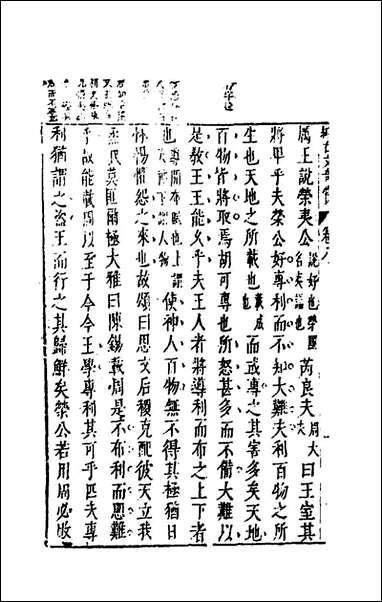 厲王說榮夷公說好也榮國名夷謚也芮良夫周大夫曰王室其
將卑乎夫榮公好專利而不知大難夫利百物之所
生也天地之所載也載成也而或專之其害多矣天地
百物皆將取焉胡可專也所怒甚多而不備大難以
是教王王能久乎夫王人者將導利而布之上下者
也導開布賦也上謂天神下謂人物使神人百物無不得其極猶日
怵惕懼怨之來也故頌曰思文后稷克配彼天立我
烝民莫匪爾極大雅曰陳錫載周是不布利而懼難
乎故能載周以至于今今王學專利其可乎匹夫專
利猶謂之盜王而行之其歸鮮矣榮公若用周必敗